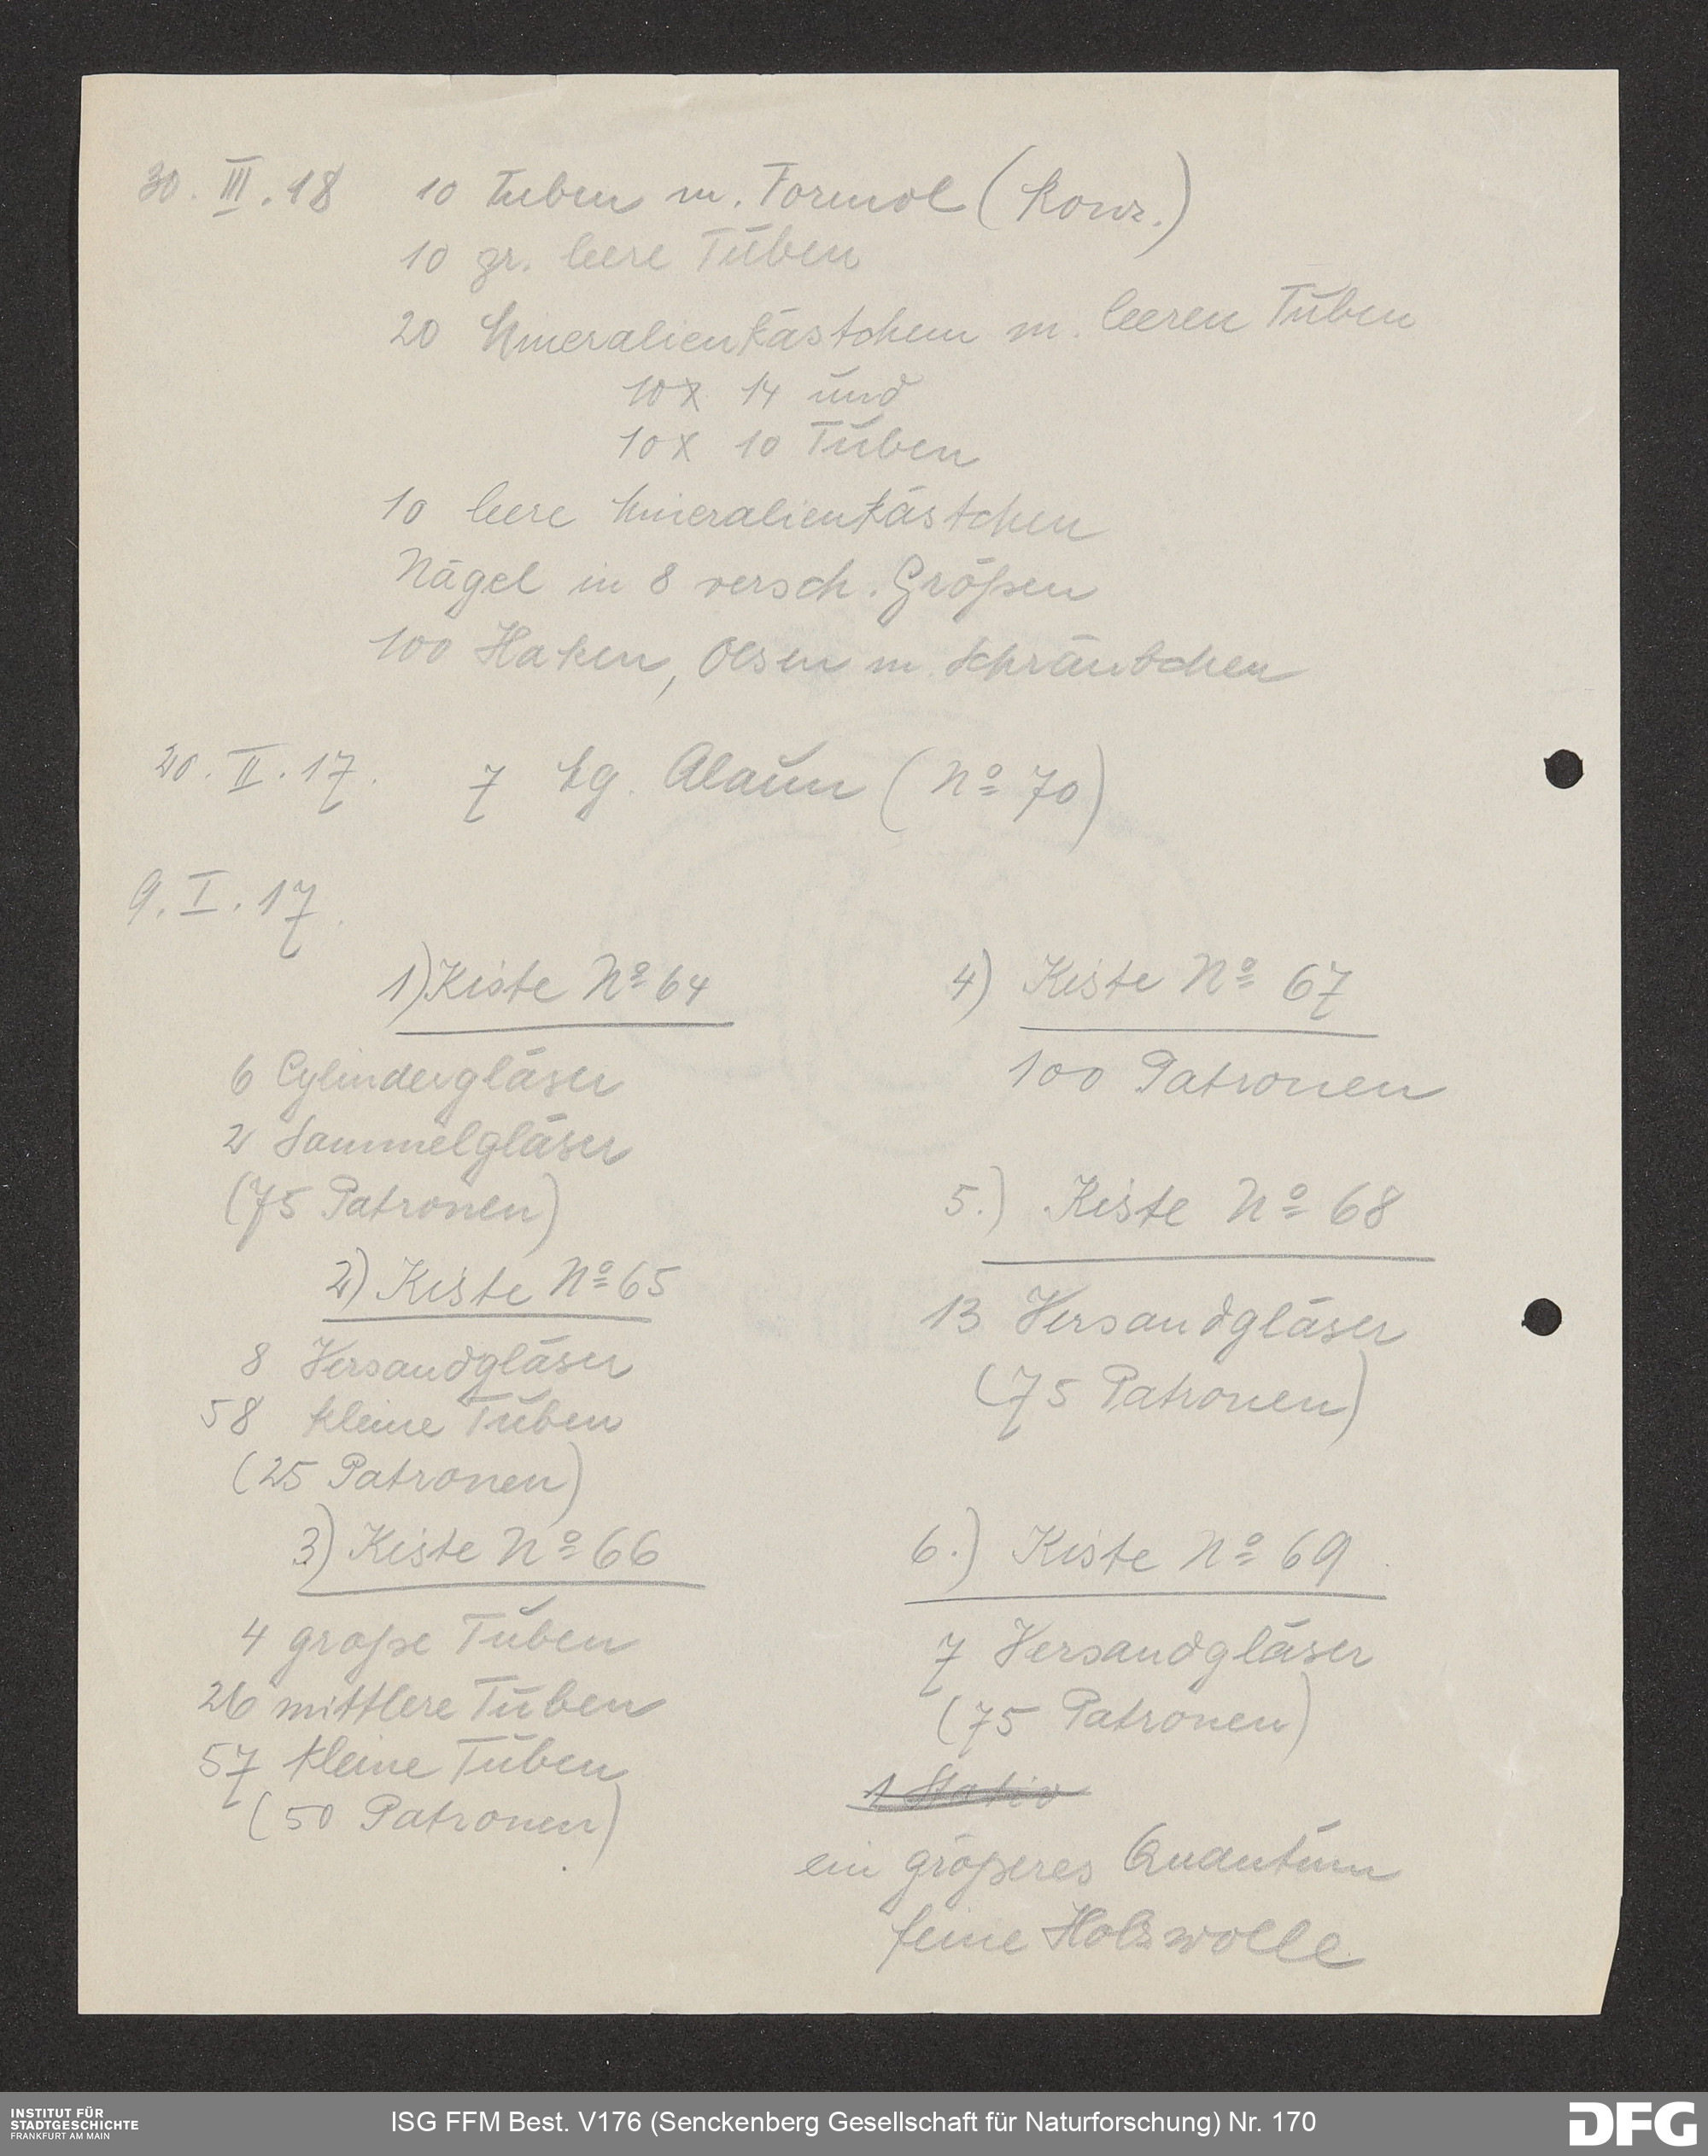 30. III. 18 10 Tuben m. Formol (Konz.)
10 gr. leere Tuben
20 Mineralienkästchen m. leeren Tuben
10 x 14 und
10 x 10 Tuben
10 leere Mineralienkästchen
Nägel in 8 versch. Größen
100 Haken, Oesen m. Schräubchen
20. II. 17. 7 kg. Alaun (Nº 70)
9. I. 17.
1) Kiste Nº 64
6 Cylindergläser
2 Sammelgläser
(75 Patronen)
2) Kiste Nº 65
8 Versandgläser
58 kleine Tuben
(25 Patronen)
3) Kiste Nº 66
4 große Tuben
26 mittlere Tuben
57 kleine Tuben
(50 Patronen)
4) Kiste Nº 67
100 Patronen
5.) Kiste Nº 68
13 Versandgläser
(75 Patronen)
6.) Kiste Nº 69
7 Versandgläser
(75 Patronen)
1 Stativ
ein größeres Quantum
feine Holzwolle
INSTITUT FÜR
STADTGESCHICHTE
FRANKFURT AM MAIN
ISG FFM Best. V176 (Senckenberg Gesellschaft für Naturforschung) Nr. 170
DFG